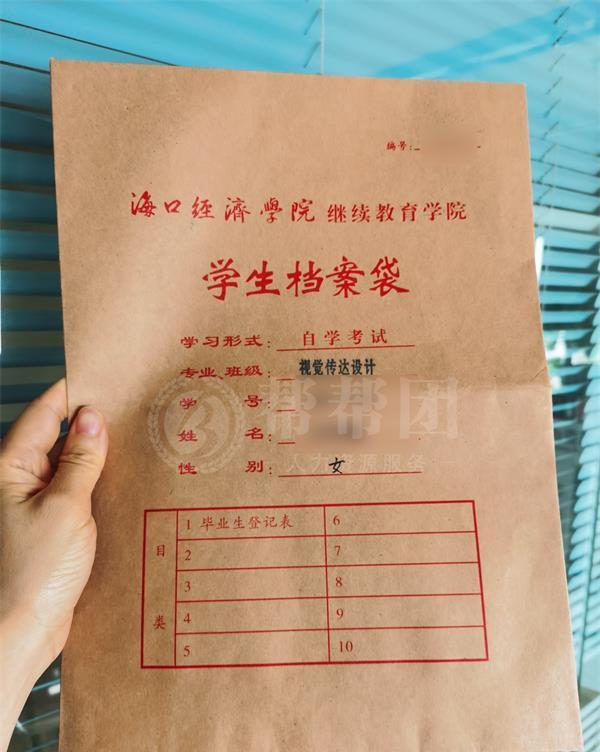 编号:
海口经濟學院 继续教育学院
学生档案袋
学习形式: 自学考试
专业班级: 视觉传达设计
学 号:
姓 名:
性 别: 女
帮帮团
人力资源服务
目类
1 毕业生登记表 6
2 7
3 8
4 9
5 10